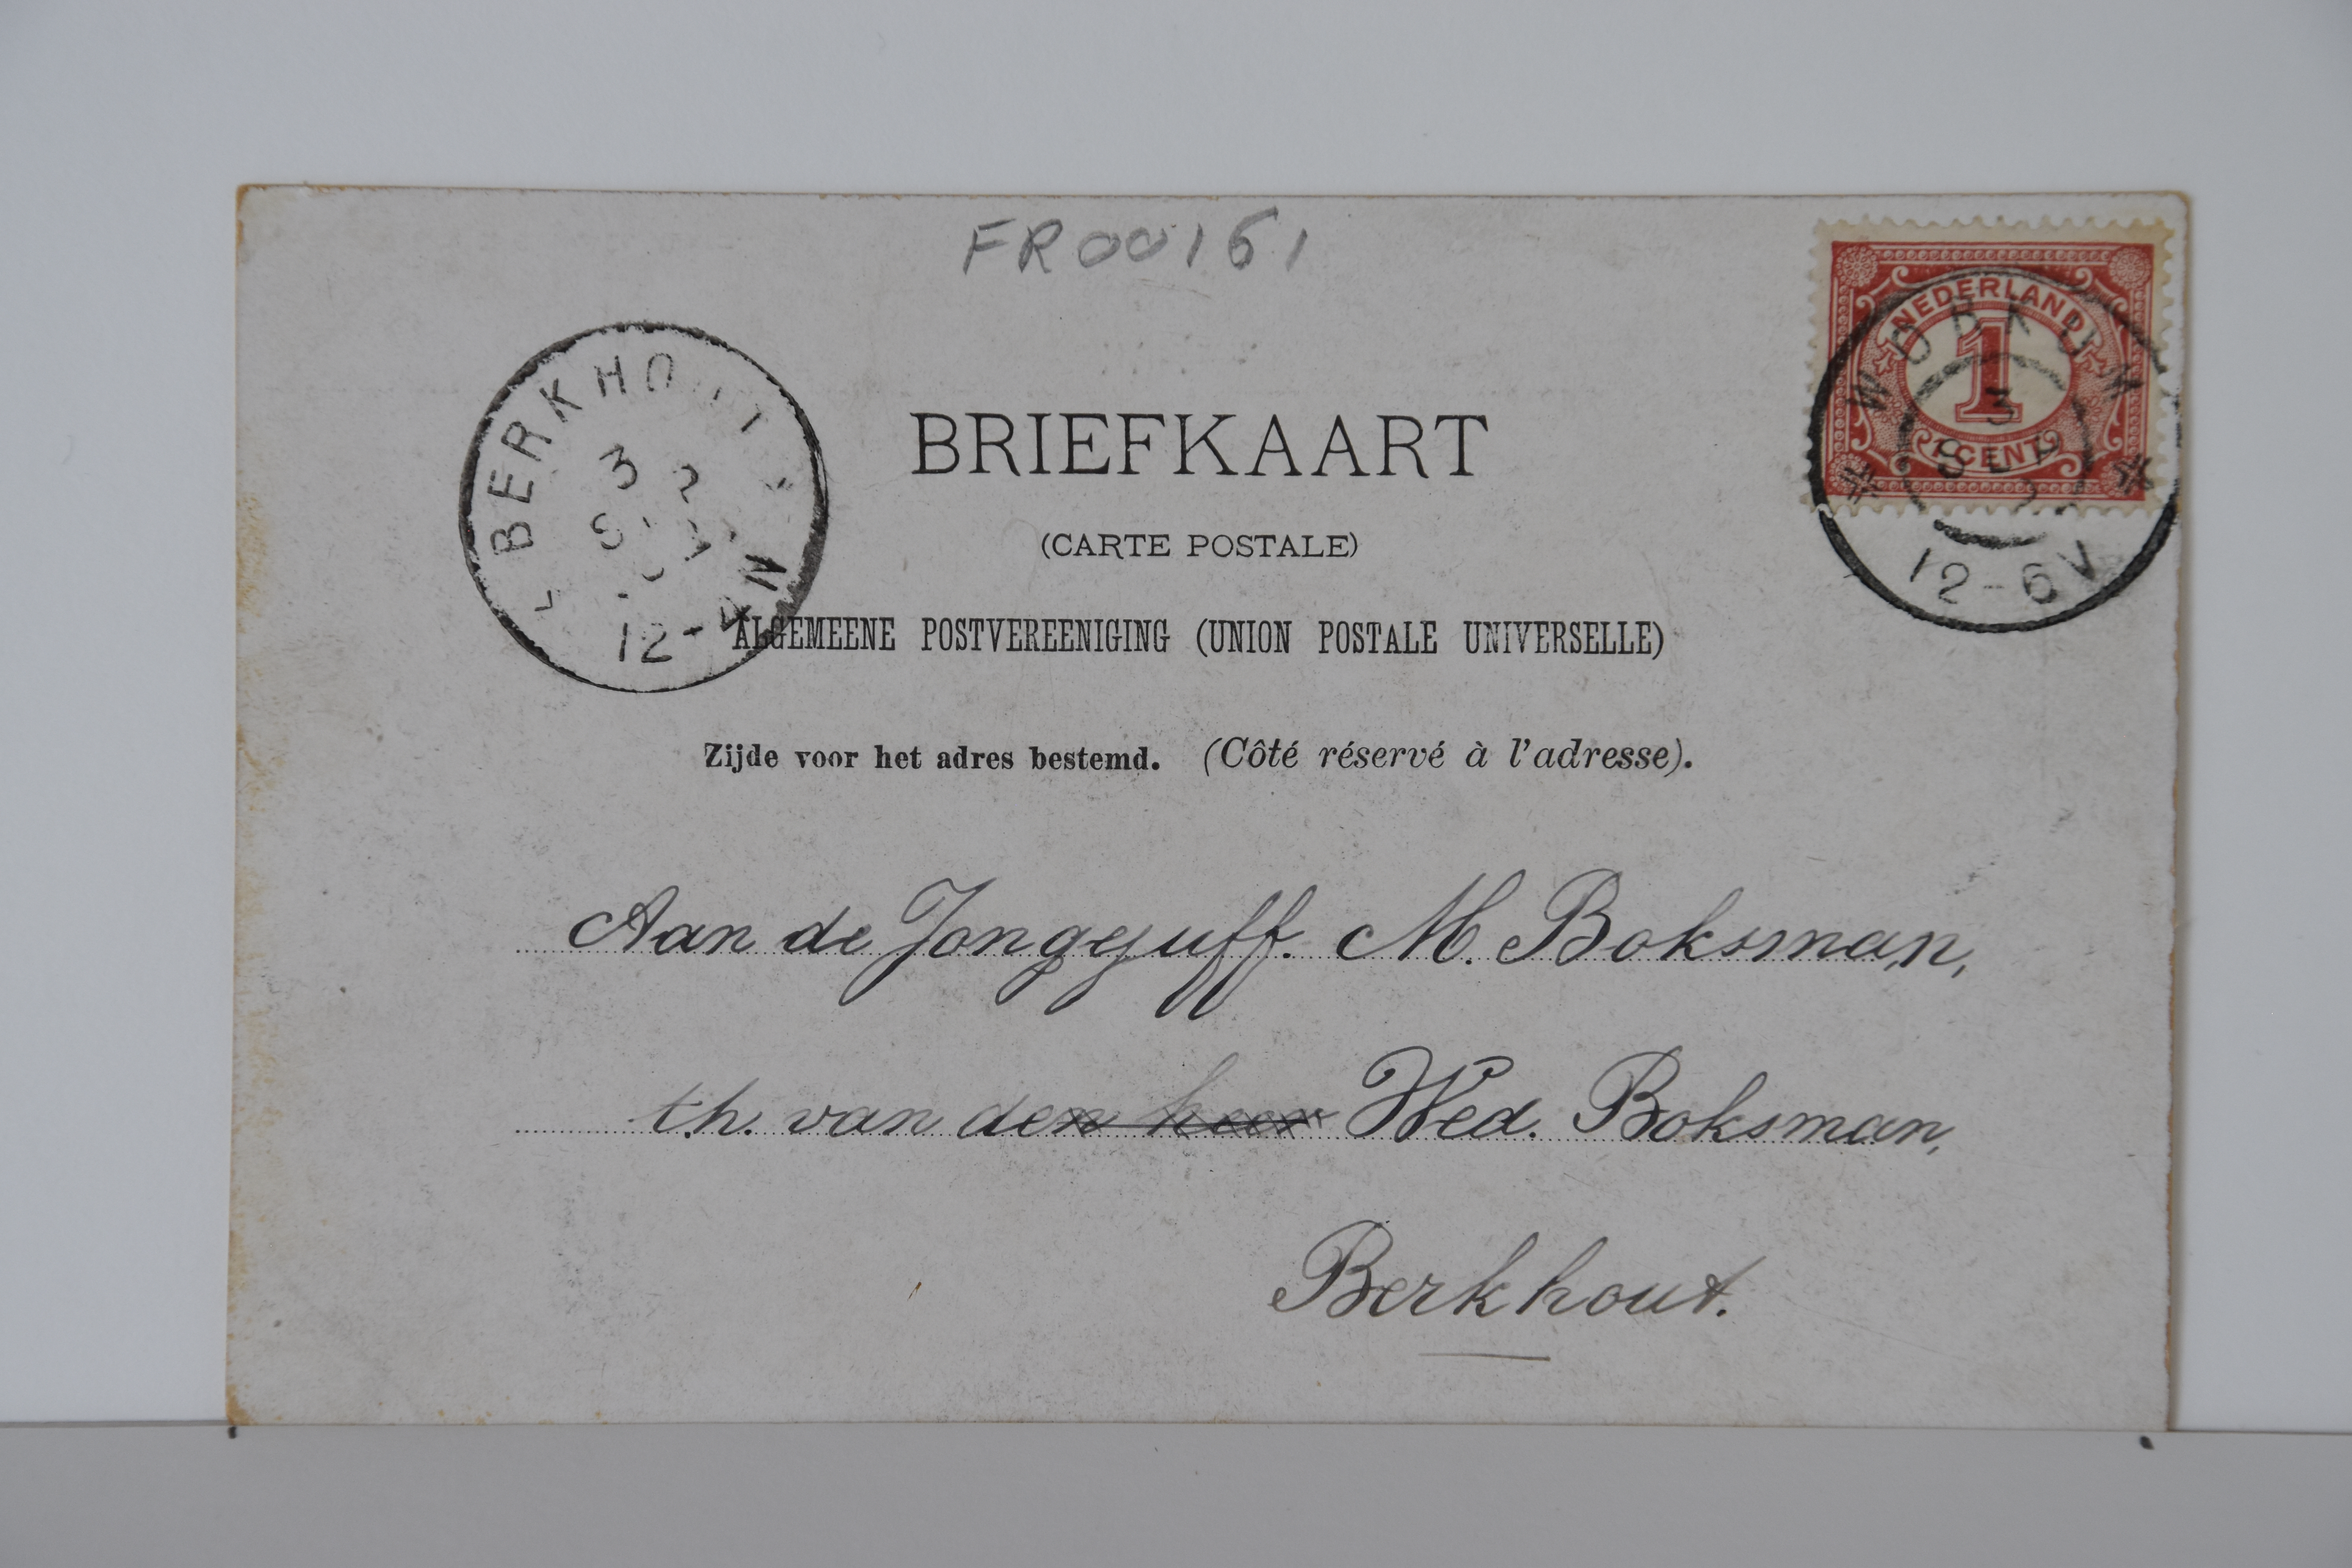 FR00161
NEDERLAND
1
CENT
WORKUM
3
SEP
12-6V
BERKHOUT
3
12-4N
BRIEFKAART
(CARTE POSTALE)
ALGEMEENE POSTVEREENIGING (UNION POSTALE UNIVERSELLE)
Zijde voor het adres bestemd. (Côté réservé à l'adresse).
Aan de Jongejuff. M. Boksman,
t.h. van den heer Wed. Boksman,
Berkhout.